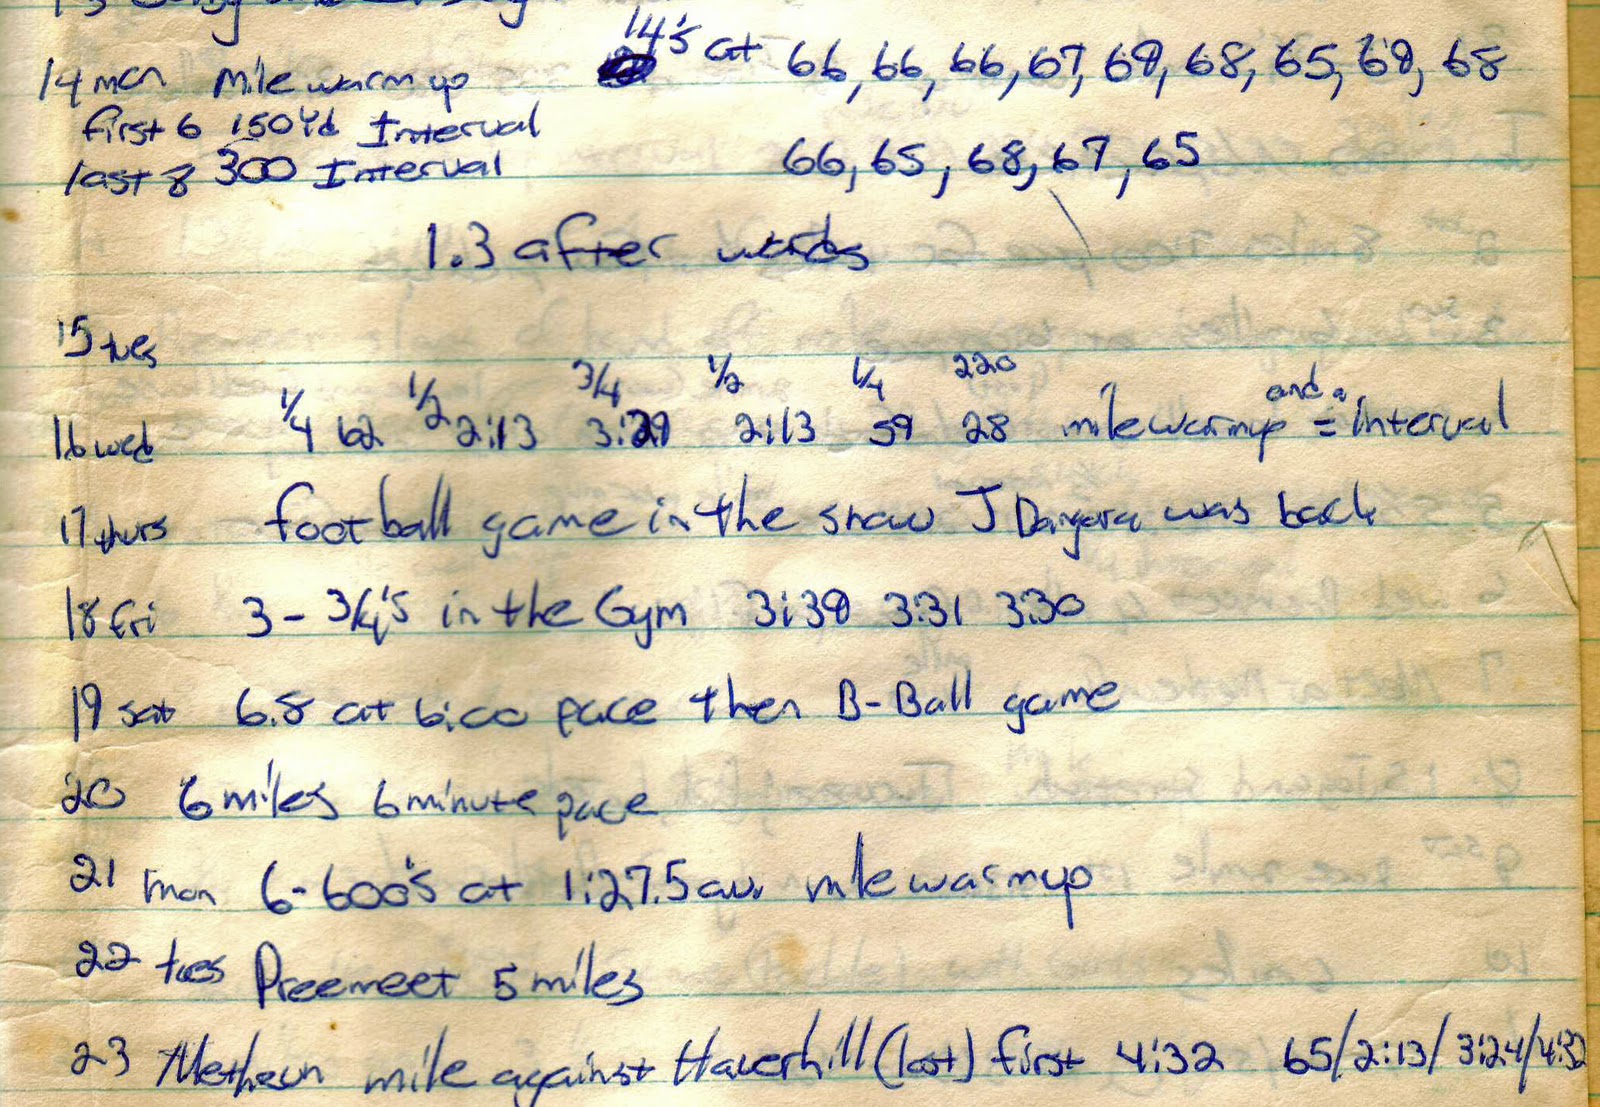 14's at 66, 66, 66, 67, 68, 68, 65, 68, 68
14 mon mile warm up
first 6 150 Yd Interval
last 8 300 Interval
66, 65, 68, 67, 65
1.3 after words
15 tues
1/4 1/2 3/4 1/2 1/4 220
16 wed 62 2:13 3:29 2:13 59 28 mile warmup and a = Interval
17 thurs football game in the snow J Dangora was back
18 fri 3 - 3/4's in the Gym 3:38 3:31 3:30
19 sat 6.8 at 6:00 pace then B-Ball game
20 6 miles 6 minute pace
21 mon 6-600's at 1:27.5 av. mile warmup
22 tues Preemeet 5 miles
23 Methuen mile against Haverhill (lost) first 4:32 65/2:13/3:24/4:32